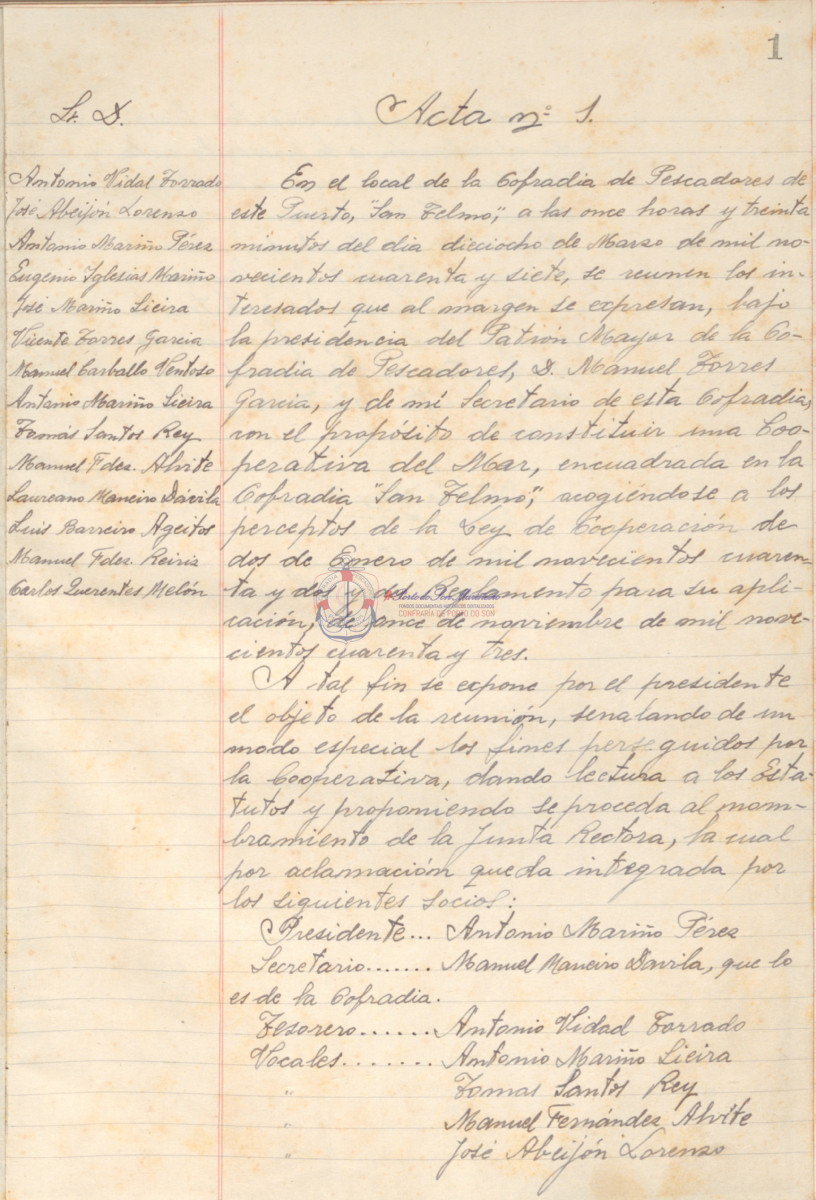 1
Sr. D.
Acta nº 1.
Antonio Vidal Torrado
José Abeijón Lorenzo
Antonio Mariño Pérez
Eugenio Iglesias Mariño
José Mariño Lieira
Vicente Torres Garcia
Manuel Carballo Ventoso
Antonio Mariño Lieira
Tomás Santos Rey
Manuel Fdez. Alvite
Laureano Maneiro Dávila
Luis Barreiro Ageitos
Manuel Fdez. Reiris
Carlos Querentes Melón
En el local de la Cofradia de Pescadores de
este Puerto, "San Telmo", a las once horas y treinta
minutos del dia dieciocho de Marzo de mil no-
vecientos cuarenta y siete, se reunen los in-
teresados que al margen se expresan, bajo
la presidencia del Patrón Mayor de la Co-
fradia de Pescadores, D. Manuel Torres
Garcia, y de mi Secretario de esta Cofradia,
con el propósito de constituir una Coo-
perativa del Mar, encuadrada en la
Cofradia "San Telmo", acogiéndose a los
perceptos de la Ley de Cooperación de
dos de Enero de mil novecientos cuaren-
ta y dos y del Reglamento para su apli-
cación, de once de noviembre de mil nove-
cientos cuarenta y tres.
A tal fin se expone por el presidente
el objeto de la reunión, senalando de un
modo especial los fines perseguidos por
la Cooperativa, dando lectura a los Esta-
tutos y proponiendo se proceda al nom-
bramiento de la Junta Rectora, la cual
por aclamación queda integrada por
los siguientes socios:
Presidente... Antonio Mariño Pérez
Secretario....... Manuel Maneiro Dávila, que lo
es de la Cofradia.
Tesorero....... Antonio Vidad Torrado
Vocales........ Antonio Mariño Lieira
" Tomas Santos Rey
" Manuel Fernández Alvite
" José Abeijón Lorenzo
FONDOS DOCUMENTAIS HISTÓRICOS DIXITALIZADOS
CONFRARÍA DE PORTO DO SON